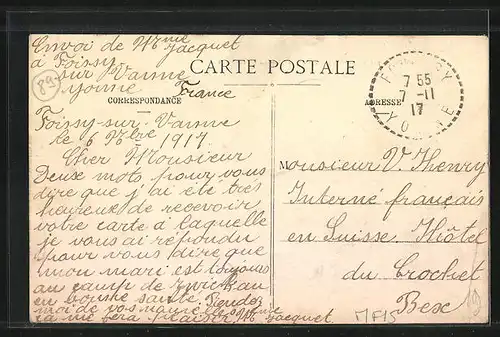 Envoi de Mme Jacquet
à Foissy
sur Vanne
Yonne
France
89
CARTE POSTALE
CORRESPONDANCE
ADRESSE
7 55
7 -11
17
YONNE
Foissy-sur-Vanne
le 6 9bre 1917
Cher Monsieur
Deux mots pour vous
dire que j'ai été très
heureux de recevoir
votre carte à laquelle
je vous ai répondu
pour vous dire que
mon mari est toujours
au camp de
en bonne santé.
moi de vos nouvelles
sa me fera plaisir Me Jacquet
Monsieur V. Thenry
Interné français
en Suisse. Hôtel
du Crochet
Bex
MF15